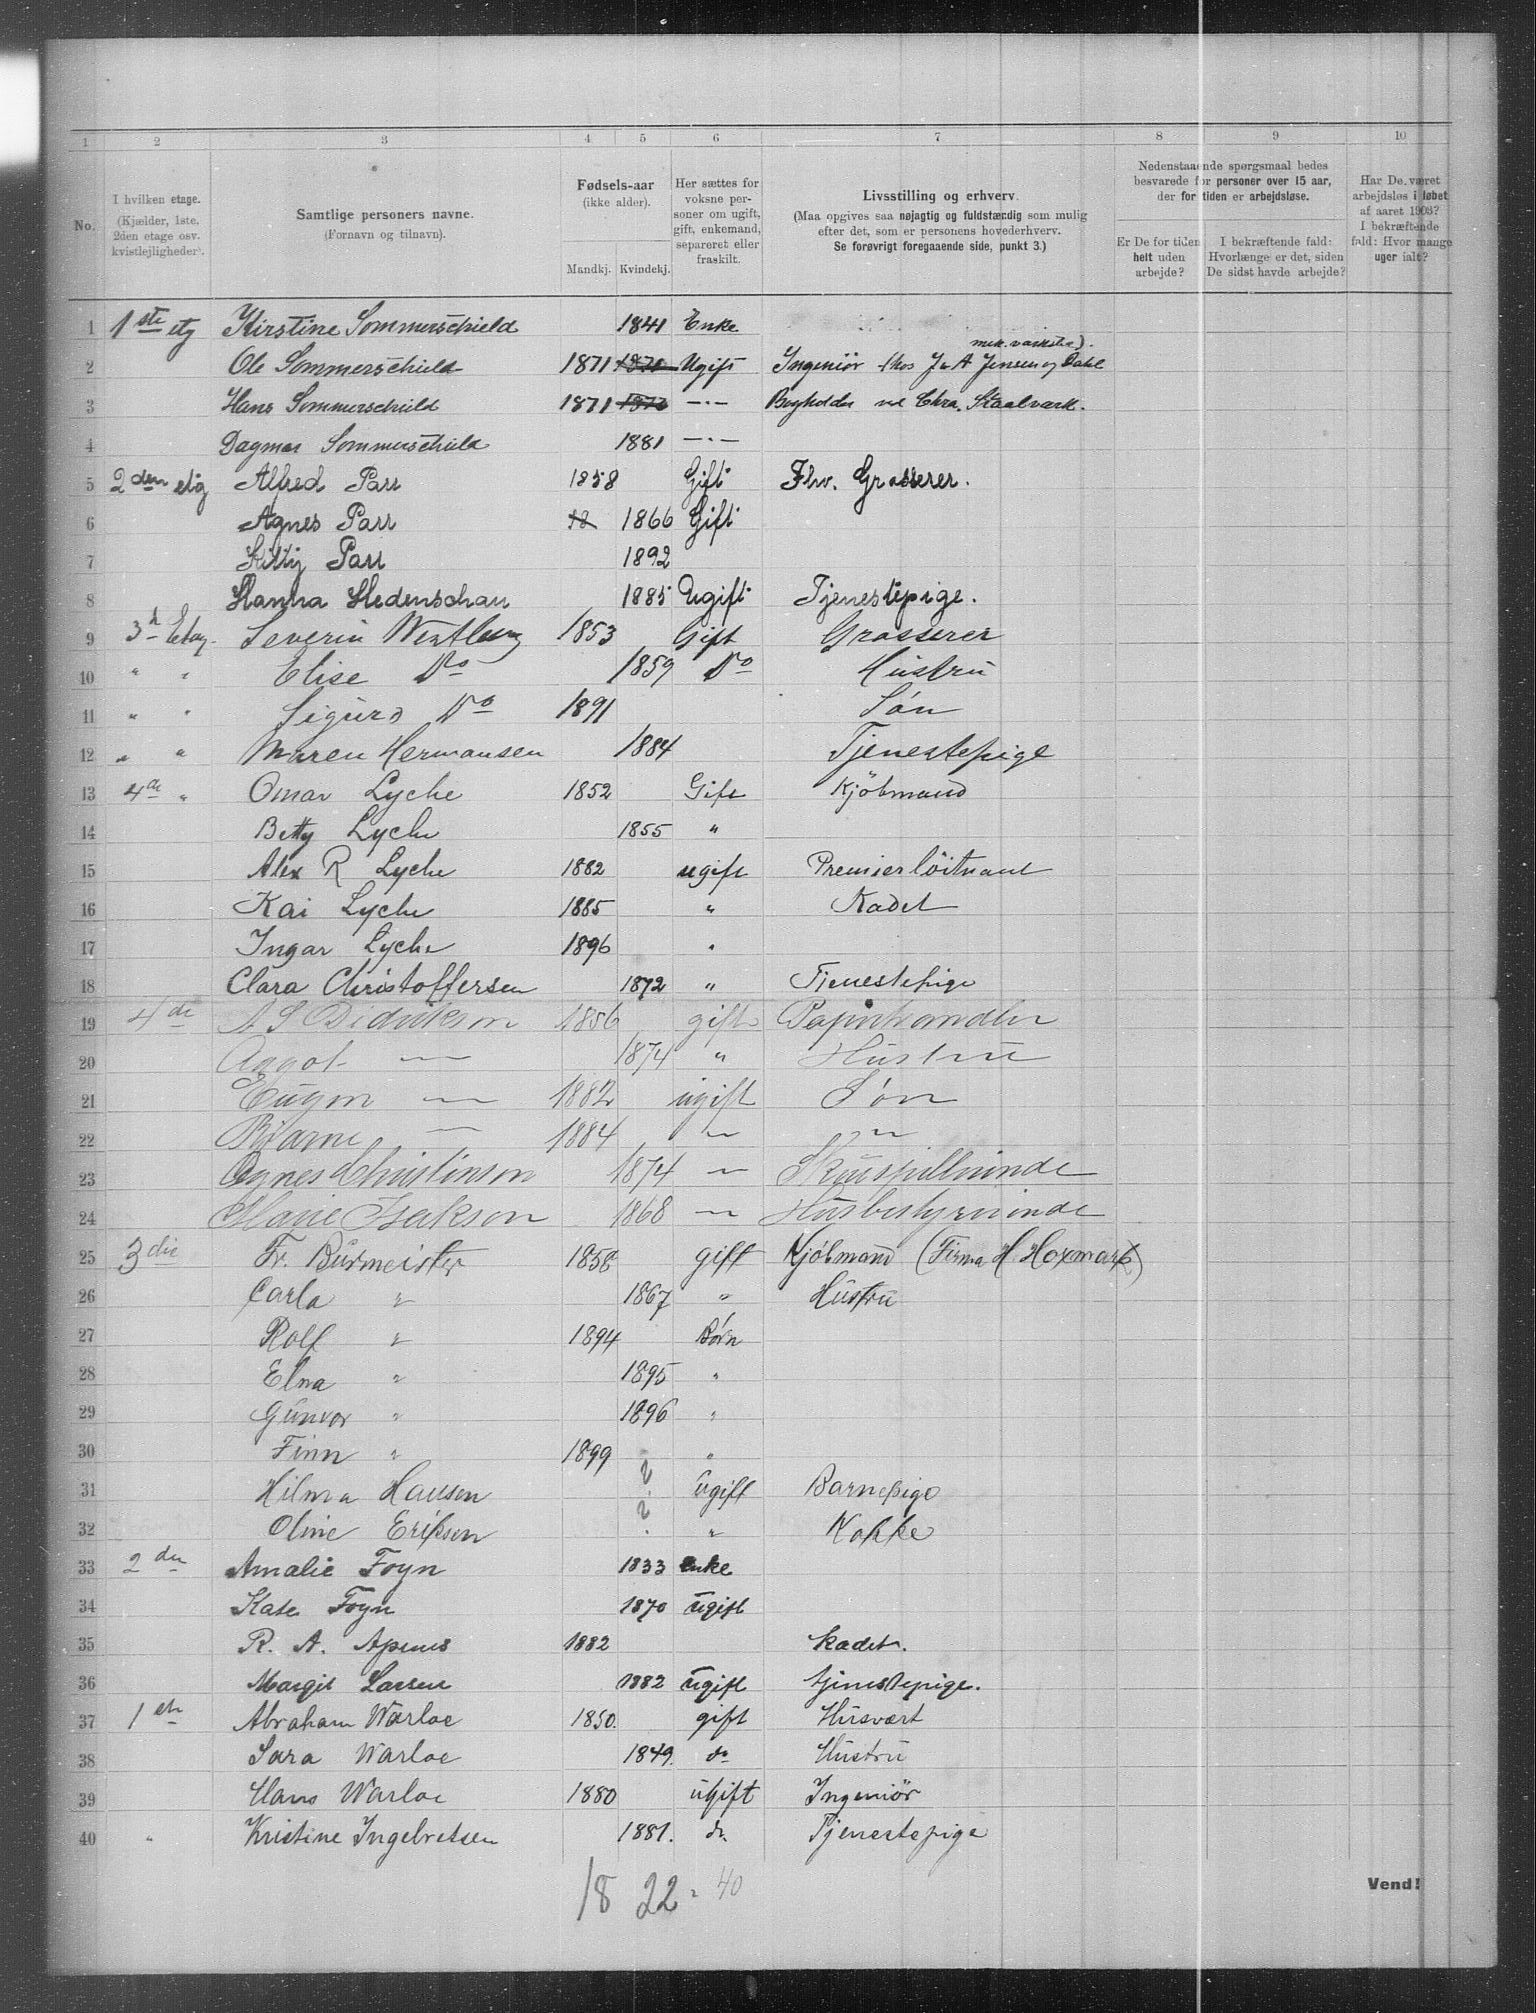 1 2 3 4 5 6 7 8 9 10
No.
I hvilken etage.
(Kjælder, 1ste,
2den etage osv.
kvistlejligheder).
Samtlige personers navne.
(Fornavn og tilnavn).
Fødsels-aar
(ikke alder).
Mandkj. Kvindekj.
Her sættes for
voksne per-
soner om ugift,
gift, enkemand,
separeret eller
fraskilt.
Livsstilling og erhverv.
(Maa opgives saa nøjagtig og fuldstændig som mulig
efter det, som er personens hovederhverv.
Se forøvrigt foregaaende side, punkt 3.)
Nedenstaaende spørgsmaal bedes
besvarede for personer over 15 aar,
der for tiden er arbejdsløse.
Er De for tiden
helt uden
arbejde?
I bekræftende fald:
Hvorlænge er det, siden
De sidst havde arbejde?
Har De været
arbejdsløs i løbet
af aaret 1903?
I bekræftende
fald: Hvor mange
uger ialt?
1 1ste etg Kirstine Sommerschield 1841 Enke
mek. værksted).
2 Ole Sommerschield 1871 1871 Ugift Ingeniør (hos J & A Jensen og Dahl
3 Hans Sommerschield 1871 1871 —"— Bogholder ved Chra. Staalværk.
4 Dagmar Sommerschield 1881 —"—
5 2den etg Alfred Parr 1858 Gift Fhv. Grosserer.
6 Agnes Parr 18 1866 Gift
7 Kitty Parr 1892
8 Hanna Hedenschau 1885 Ugift Tjenestepige.
9 3d Etag. Severin Westbung 1853 Gift Grosserer
10 " " Elise Do 1859 Do Hustru
11 " " Sigurd Do 1891 Søn
12 " " Maren Hermansen 1884 Tjenestepige
13 4de " Omar Lyche 1852 Gift Kjöbmand
14 Betty Lyche 1855 "
15 Alex R Lyche 1882 ugift Premierlöitnant
16 Kai Lyche 1885 " Kadet
17 Ingar Lyche 1896 "
18 Clara Christoffersen 1872 " Tjenestepige
19 4de A S Dedrikson 1856 gift Papirhandler
20 Aagot — 1874 " Hustru
21 Eugen — 1882 ugift Søn
22 Bjarne — 1884 — "
23 Agnes Christinson 1874 — Skuespillerinde
24 Marie Isakson 1868 — Husbestyrerinde
25 3die Fr. Burmeister 1858 gift Kjöbmand (Firma H. Hoxmark)
26 Carla " 1867 " Hustru
27 Rolf " 1894 Børn
28 Elna " 1895 "
29 Gunvor " 1896 "
30 Finn " 1899 "
31 Hilma Hansen ? Ugift Barnepige
32 Oline Eriksen ? " Kokke
33 2den Amalie Foyn 1833 enke
34 Kate Foyn 1870 ugift
35 R. A. Apenes 1882 kadet.
36 Margit Larsen 1882 ugift tjenestepige.
37 1ste Abraham Warloe 1850. gift Husvært
38 Sara Warloe 1849. do Hustru
39 Hans Warloe 1880 ugift Ingeniør
40 " Kristine Ingebretsen 1881. do. Tjenestepige
18 22 = 40
Vend!